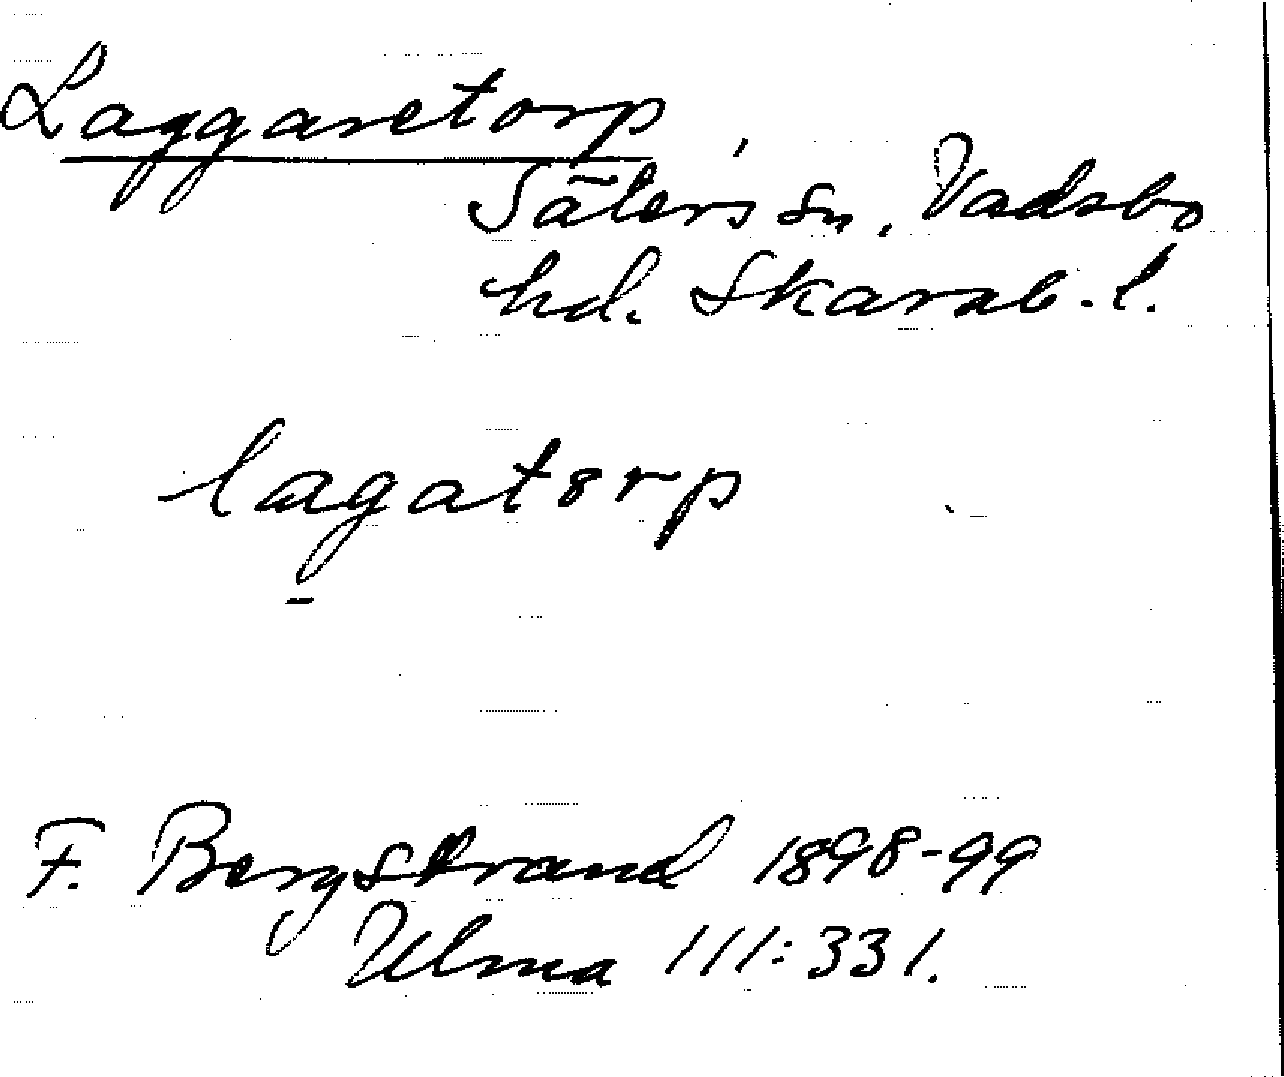 Laggaretorp
Säters sn, Vadsbo
hd. Skarab. l.
lagatorp
F. Bergstrand 1898-99
Ulma 111:331.